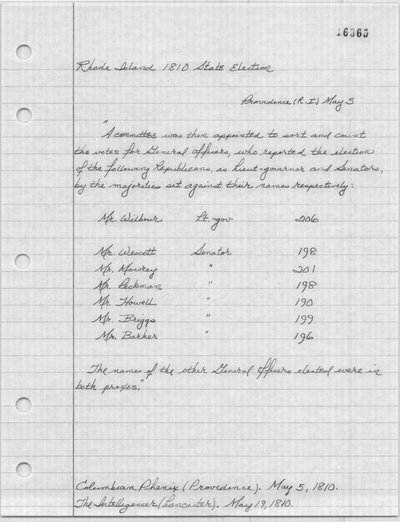 16365
Rhode Island 1810 State Election
Providence (R.I.) May 5
"A committee was then appointed to sort and count
the votes for General officers, who reported the election
of the following Republicans, as Lieut-governor and Senators,
by the majorities set against their names respectively:
Mr. Wilbour Lt.-gov 206
Mr. Wescott Senator 198
Mr. Mowrey " 201
Mr. Peckman " 198
Mr. Howell " 190
Mr. Briggs " 199
Mr. Barker " 196
The names of the other General Officers elected were in
both proxes."
Columbian Phenix (Providence). May 5, 1810.
The Intelligencer (Lancaster). May 19, 1810.